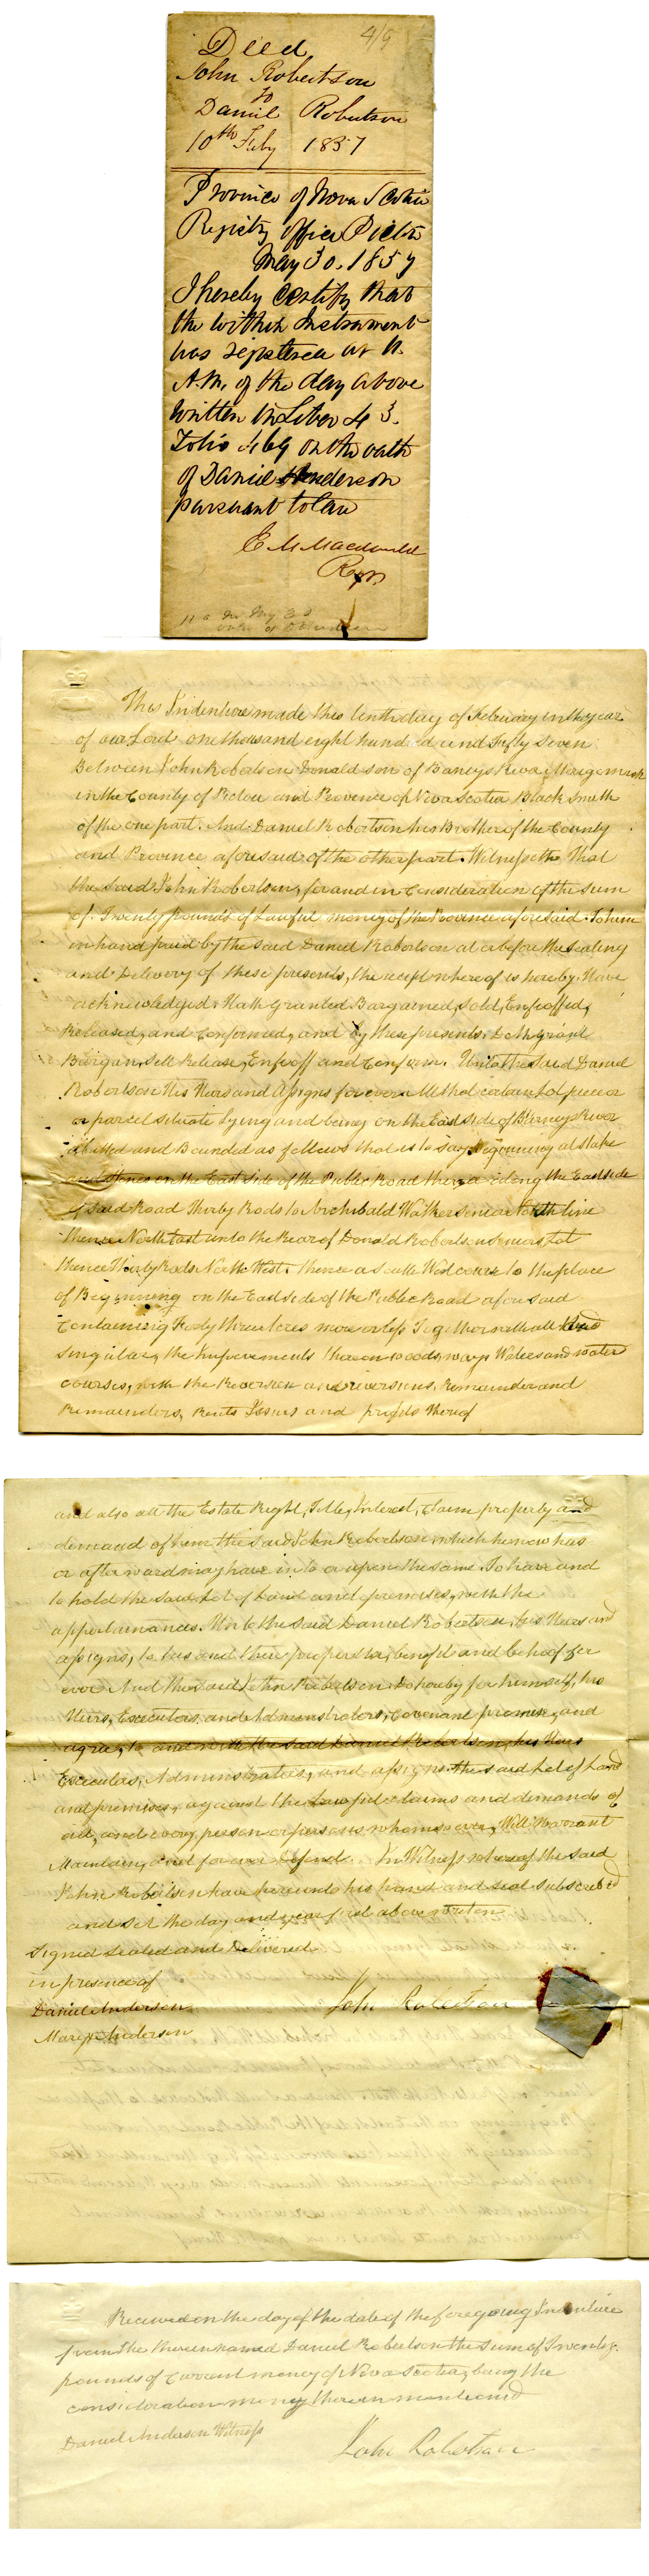 4/9
Deed
John Robertson
to
Daniel Robertson
10th Feby 1857
Province of Nova Scotia
Registry office Pictou
May 30. 1857
I hereby certify that
the within Instrument
was registered at 11.
A.M. of the day above
written in Liber 43.
Folio 469 on the oath
of Daniel Anderson
pursuant to law
E M Macdonald
Regr.
This Indenture made this tenth day of Febuary in the year
of our Lord one thousand eight hundred and Fifty Seven
Between John Robertson Donald son of Barneys River Merigomish
in the County of Pictou and Provence of Nova Scotia Black Smith
of the one part. And Daniel Robertson his Brother of the County
and Province aforesaid of the other part. Witnesseth That
the said John Robertson, for and in Consideration of the sum
of Twenty pounds of Lawful money of the Province aforesaid To him
in hand paid by the said Daniel Robertson at or before the sealing
and Delivery of these presents, the recept whereof is hereby Have
acknowledged. Hath Granted Bargained, Sold, Enfeoffed,
Released, and Confirmed, and by these presents. Doth grant
Bargan, Sell Release, Enfeoff and Confirm. Unto the said Daniel
Robertson His Heirs and Assigns for ever All that certain Lot piece or
or parcel situate Lying and being on the East side of Barneys River
abutted and Bounded as follows that is to say Beginning at Stake
and Stones on the East Side of the Public Road thence along the East side
of said Road Thirty Rods to Archibald Walker senior North line
thence North East unto the Rear of Donald Robertson seniors Lot
thence Thirty Rods North West. thence a South West course to the place
of Beginning on the East side of the Public Road afore said
Containing Forty three acres more or less Together with all And
singular, the Improvements thereon woods, ways Waters and water
courses, with the Reversion and reversions, Remainder and
Remainders, Rents Issues and profits thereof
and also all the Estate Right, Title, Interest, Claim property and
demand of him the said John Robertson which he now has
or afterward may have in to or upon the same. To have and
to hold the said Lot of Land and premises, with the
appertainances. Unto the said Daniel Robertson, his Heirs and
assigns, to his and their proper use, benefit and behoof for
ever And the said John Robertson Do hereby for himself, his
Heirs, Executors, and Admenstrators, Covenant promise, and
agree, to and with the said Daniel Robertson, his Heirs
Executors, Administrators, and assigns. the said Lot of Land
and premises, against the Lawful claims and demands of
all, and every, person or persons whomsoever, Will Warrant
Maintain, and for ever Defend. In Witness whereof the said
John Robertson have hereunto his hand and seal subscribed
and set the day and year first above writen
Signed sealed and Delivered
in presence of
Daniel Anderson
John Robertson
Mary Anderson
Received on the day of the date of the foregoing Indenture
from the therein named Daniel Robertson the sum of Twenty
pounds of Current money of Nova Scotia, being the
consideration money therein mentioned
Daniel Anderson Witness
John Robertson